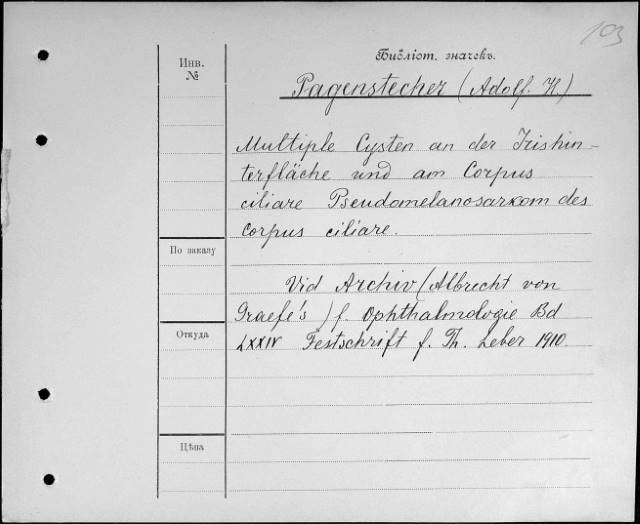 103
Библіот. значекъ.
Инв.
№
Pagenstecher (Adolf. H.)
Multiple Cysten an der Irishin-
terfläche und am Corpus
ciliare Pseudomelanosarkom des
corpus ciliare.
По заказу
Vid Archiv (Albrecht von
Graefe's) f. Ophthalmologie Bd
Откуда
LXXIV Festschrift f. Th. Leber 1910.
Цѣна